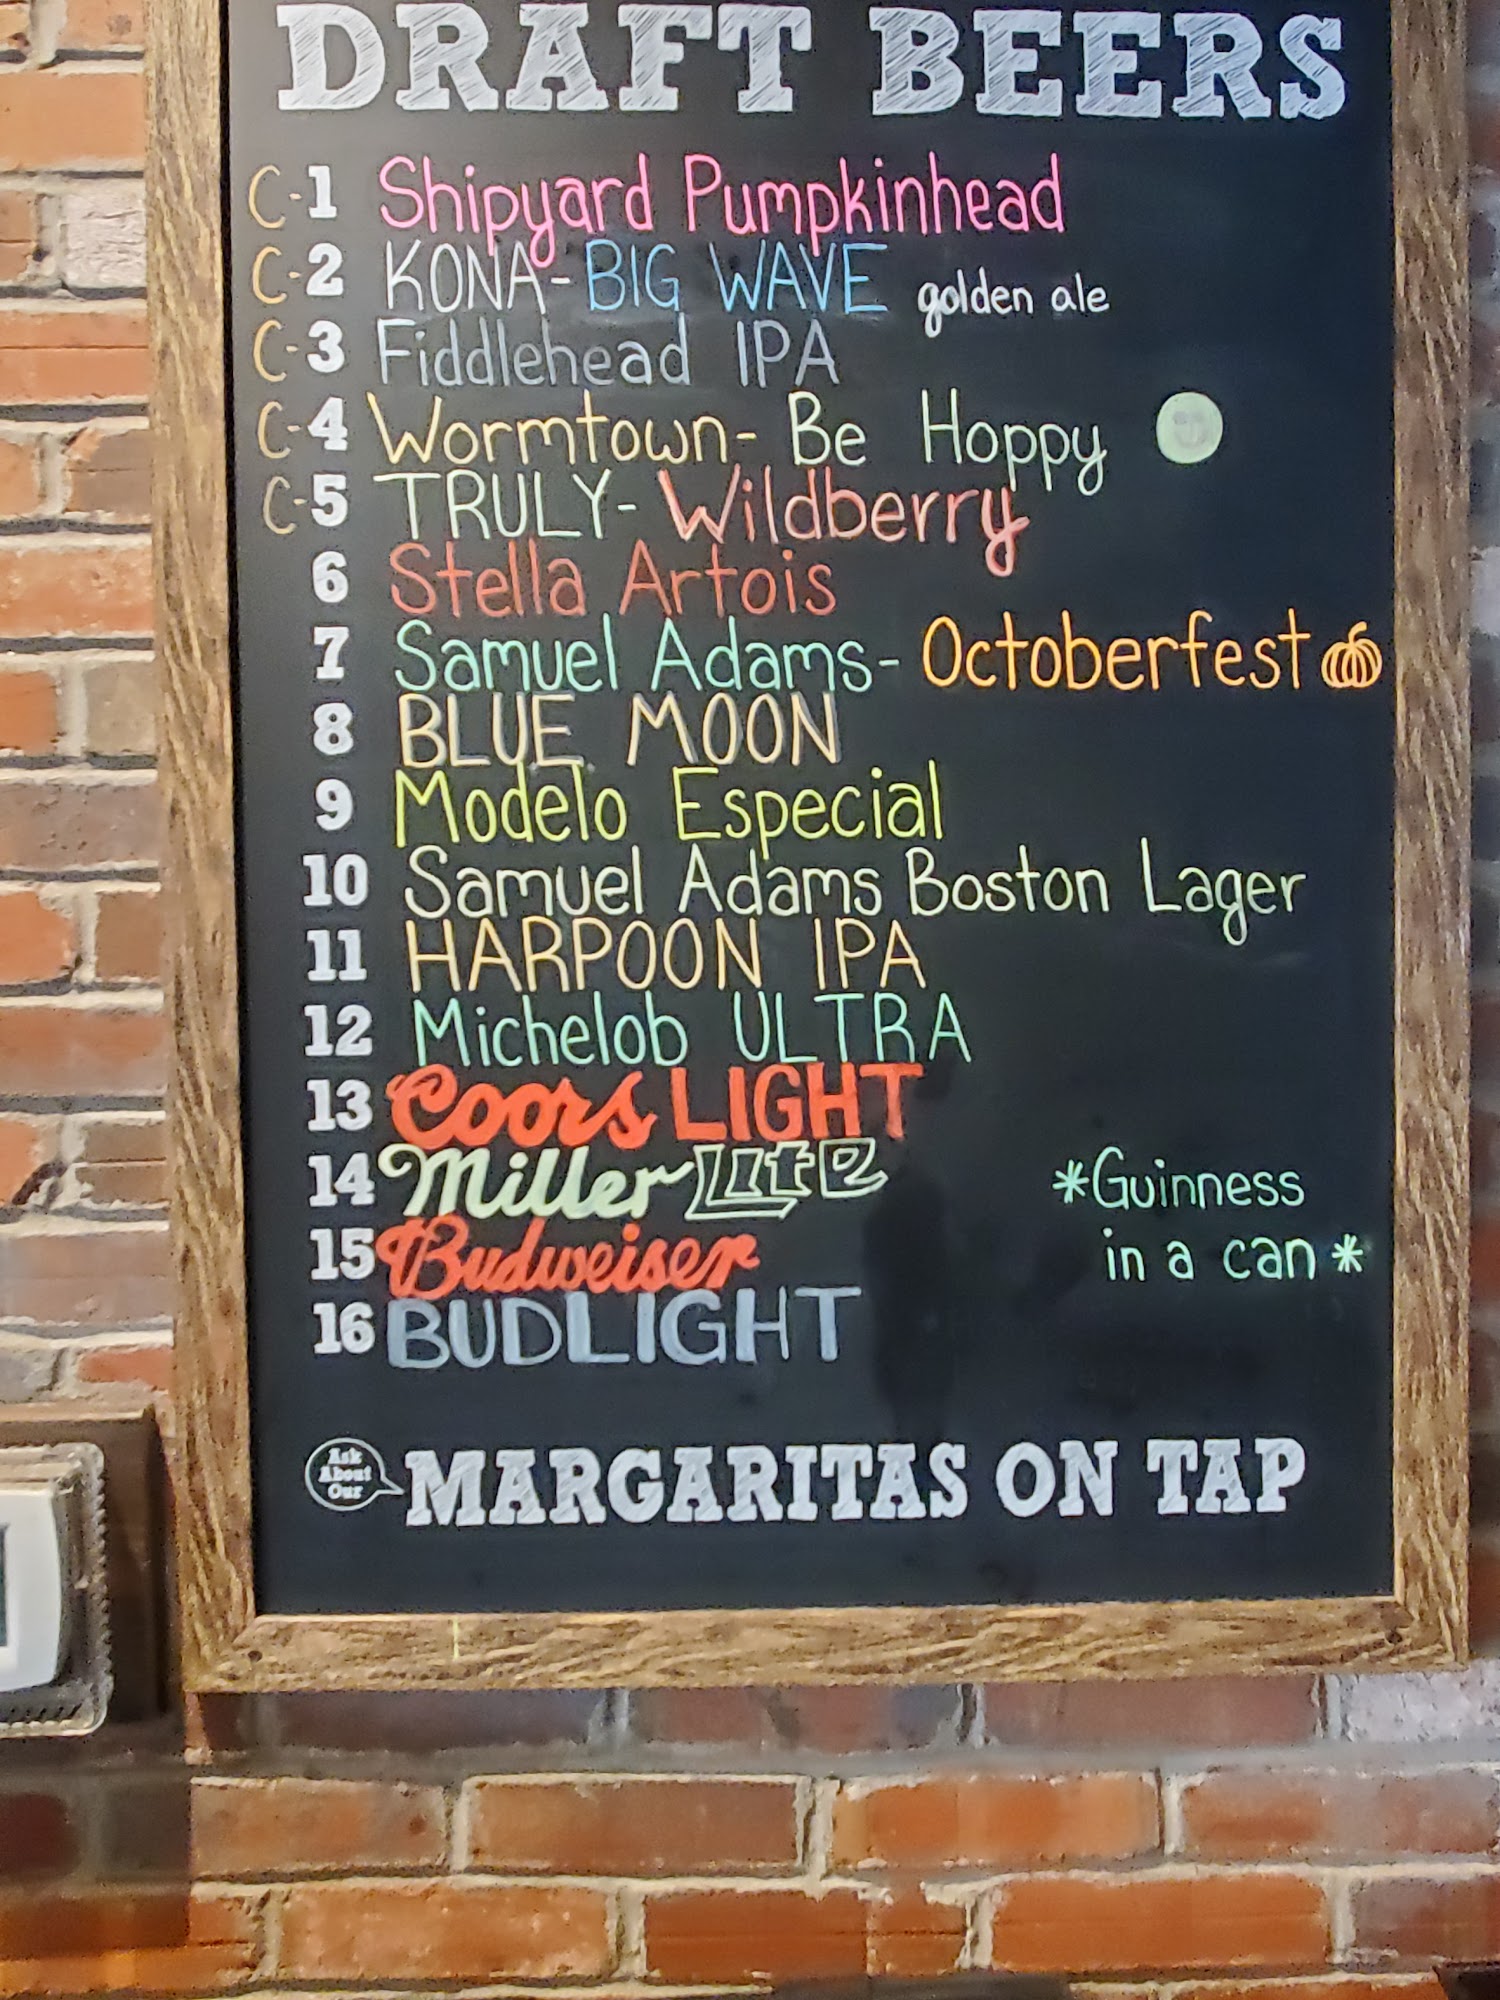 DRAFT BEERS
C-1 Shipyard Pumpkinhead
C-2 KONA-BIG WAVE golden ale
C-3 Fiddlehead IPA
C-4 Wormtown- Be Hoppy
C-5 TRULY- Wildberry
6 Stella Artois
7 Samuel Adams- Octoberfest
8 BLUE MOON
9 Modelo Especial
10 Samuel Adams Boston Lager
11 HARPOON IPA
12 Michelob ULTRA
13 Coors LIGHT
14 Miller Lite
15 Budweiser
16 BUDLIGHT
*Guinness
in a can*
Ask
About
Our
MARGARITAS ON TAP